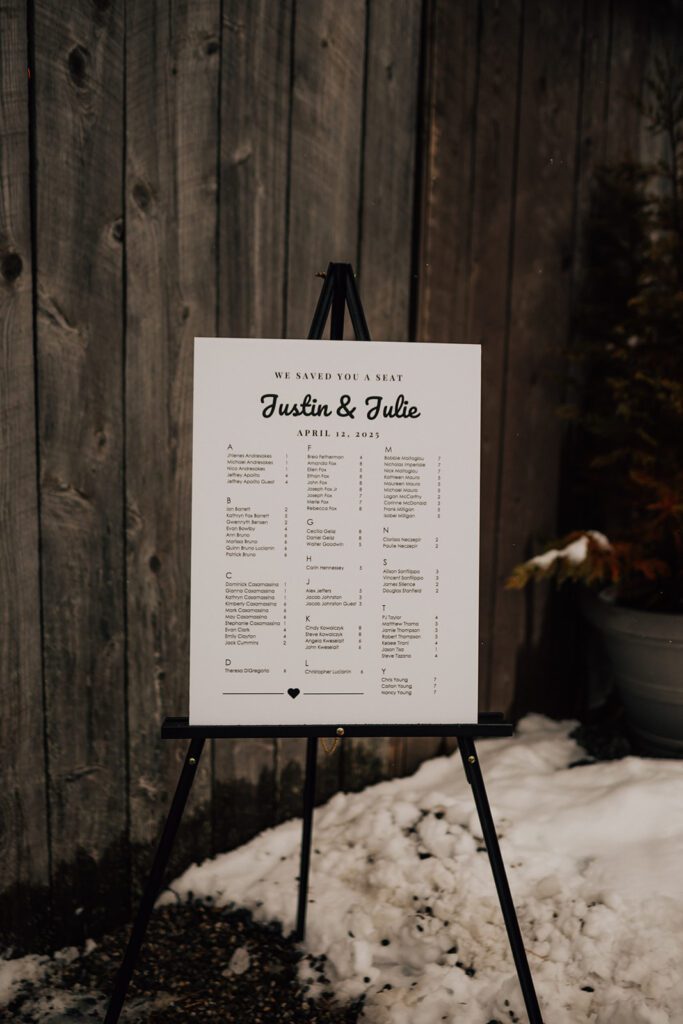 WE SAVED YOU A SEAT
Justin & Julie
APRIL 12, 2025
A
Jhienes Andresakes 1
Michael Andresakes 1
Nico Andresakes 1
Jeffrey Apolito 4
Jeffrey Apolito Guest 4
B
Jan Barrett 2
Kathryn Fox Barrett 5
Gwennyth Bensen 2
Evan Bowlby 4
Ann Bruno 6
Marissa Bruno 6
Quinn Bruno Lucianin 6
Patrick Bruno 6
C
Dominick Casamassina 1
Gianna Casamassina 1
Kathryn Casamassina 1
Kimberly Casamassina 6
Mark Casamassina 6
May Casamassina 6
Stephanie Casamassina 1
Evan Clark 4
Emily Clayton 4
Jack Cummins 2
D
Theresa DiGregorio 6
F
Brea Fetherman 6
Amanda Fox 8
Ellen Fox 5
Ethan Fox 8
John Fox 8
Joseph Fox Jr 8
Joseph Fox 7
Merle Fox 7
Rebecca Fox 8
G
Cecilia Geisz 8
Daniel Geisz 8
Walter Goodwin 5
H
Carin Hennessey 5
J
Alex Jeffers
Jacob Johnston 3
Jacob Johnston Guest 3
K
Cindy Kowalczyk 8
Steve Kowalczyk 8
Angela Kweselait 6
John Kweselait 6
L
Christopher Lucianin 6
M
Bobbie Maltoglou 7
Nicholas Imperiale 7
Nick Maltoglou 7
Kathleen Maura 5
Maureen Maura 5
Michael Maura 5
Logan McCarthy 2
Corinne McDonald 3
Frans Milligan 5
Isabel Milligan 5
N
Clarissa Neczepir 2
Paulie Neczepir 2
S
Alison Sanfilippo 3
Vincent Sanfilippo 3
James Silence 2
Douglas Stanfield 2
T
PJ Taylor 4
Matthew Thoma 3
Jamie Thompson 3
Robert Thompson 3
Kelsee Tironi 4
Jason Tka 1
Steve Tozano 4
Y
Chris Young 7
Colton Young 7
Nancy Young 7